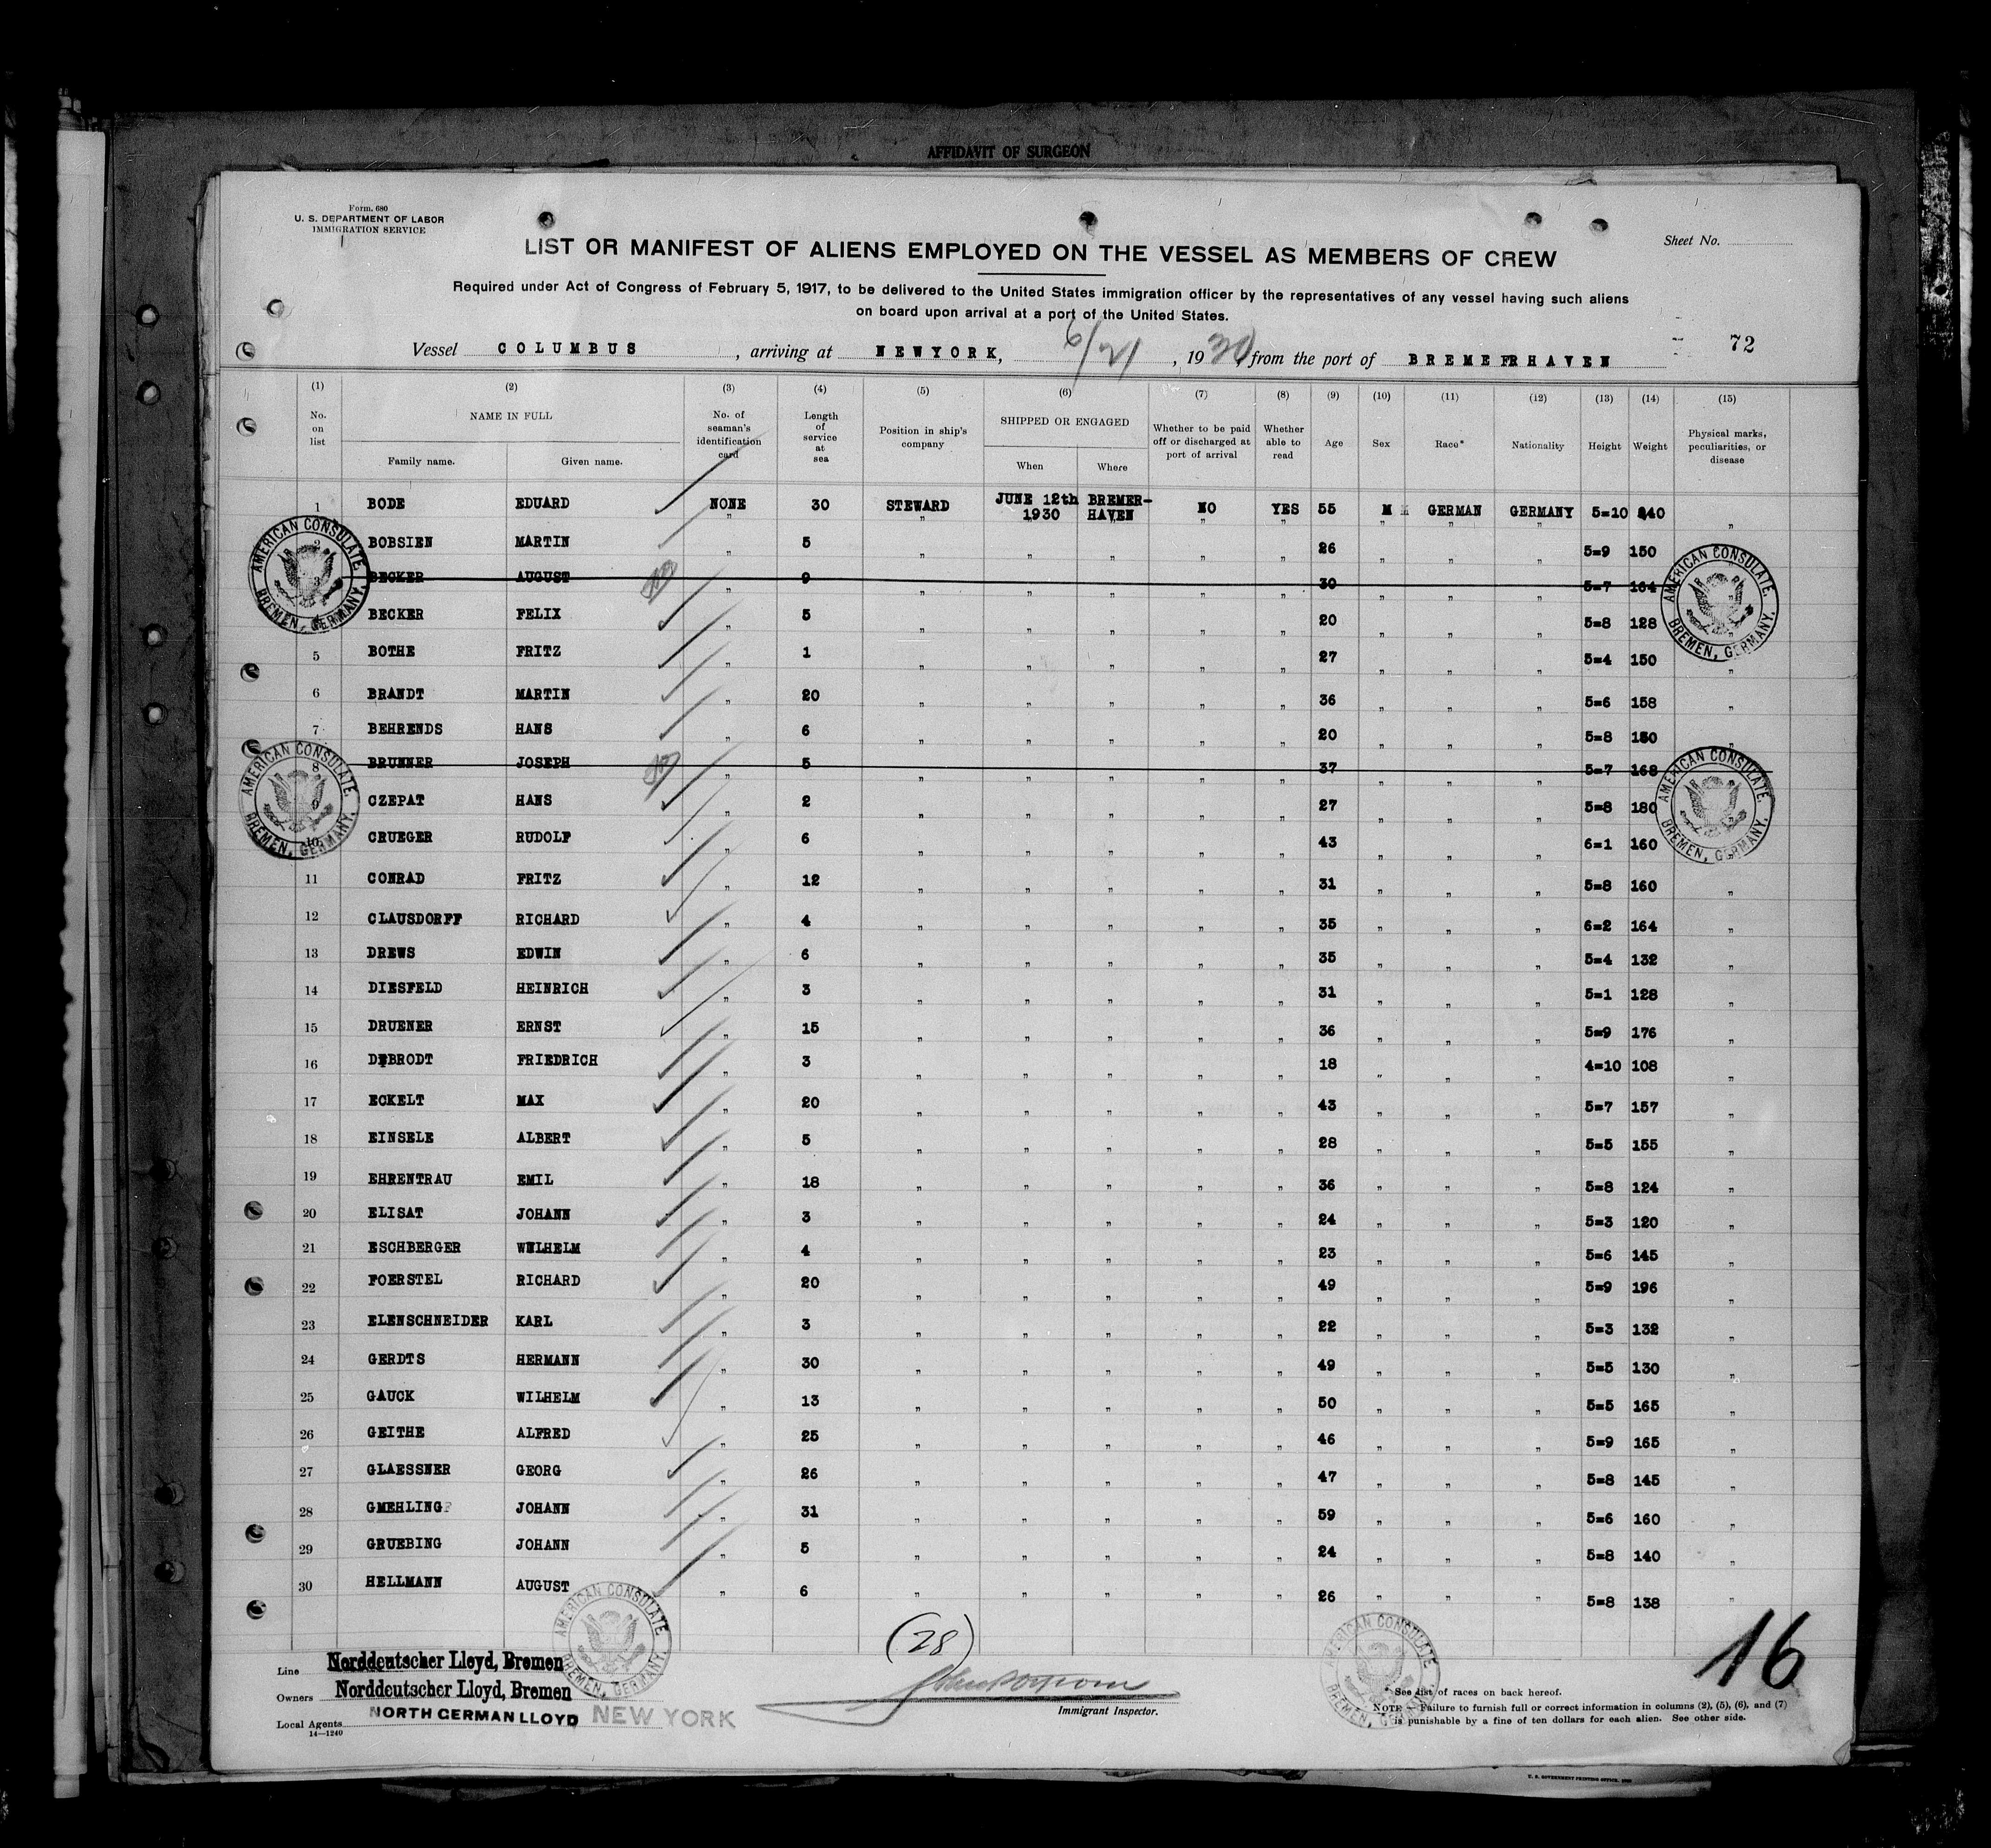 AFFIDAVIT OF SURGEON
Form. 680
U. S. DEPARTMENT OF LABOR
IMMIGRATION SERVICE
Sheet No.
LIST OR MANIFEST OF ALIENS EMPLOYED ON THE VESSEL AS MEMBERS OF CREW
Required under Act of Congress of February 5, 1917, to be delivered to the United States immigration officer by the representatives of any vessel having such aliens
on board upon arrival at a port of the United States.
Vessel COLUMBUS , arriving at NEWYORK, 6/21 , 1930, from the port of BREMERHAVEN 72
(1) (2) (3) (4) (5) (6) (7) (8) (9) (10) (11) (12) (13) (14) (15)
No. on list NAME IN FULL Family name. Given name. No. of seaman's identification card Length of service at sea Position in ship's company SHIPPED OR ENGAGED When Where Whether to be paid off or discharged at port of arrival Whether able to read Age Sex Race* Nationality Height Weight Physical marks, peculiarities, or disease
1 BODE EDUARD NONE 30 STEWARD JUNE 12th 1930 BREMER-HAVEN NO YES 55 M GERMAN GERMANY 5=10 240 "
2 BOBSIEN MARTIN " 5 " " " " " 26 " " " 5=9 150
BECKER AUGUST " 9 " " " " " 30 " " " 5=7 164
BECKER FELIX " 5 " " " " " 20 " " " 5=8 128
5 BOTHE FRITZ " 1 " " " " " 27 " " " 5=4 150 "
6 BRANDT MARTIN " 20 " " " " " 36 " " " 5=6 158 "
7 BEHRENDS HANS " 6 " " " " " 20 " " " 5=8 150 "
8 BRUNNER JOSEPH " 5 " " " " " 37 " " " 5=7 168
CZEPAT HANS " 2 " " " " " 27 " " " 5=8 180
10 CRUEGER RUDOLF " 6 " " " " " 43 " " " 6=1 160
11 CONRAD FRITZ " 12 " " " " " 31 " " " 5=8 160 "
12 CLAUSDORFF RICHARD " 4 " " " " " 35 " " " 6=2 164 "
13 DREWS EDWIN " 6 " " " " " 35 " " " 5=4 132 "
14 DIESFELD HEINRICH " 3 " " " " " 31 " " " 5=1 128 "
15 DRUENER ERNST " 15 " " " " " 36 " " " 5=9 176 "
16 DEBRODT FRIEDRICH " 3 " " " " " 18 " " " 4=10 108 "
17 ECKELT MAX " 20 " " " " " 43 " " " 5=7 157 "
18 EINSELE ALBERT " 5 " " " " " 28 " " " 5=5 155 "
19 EHRENTRAU EMIL " 18 " " " " " 36 " " " 5=8 124 "
20 ELISAT JOHANN " 3 " " " " " 24 " " " 5=3 120 "
21 ESCHBERGER WILHELM " 4 " " " " " 23 " " " 5=6 145 "
22 FOERSTEL RICHARD " 20 " " " " " 49 " " " 5=9 196 "
23 ELENSCHNEIDER KARL " 3 " " " " " 22 " " " 5=3 132 "
24 GERDTS HERMANN " 30 " " " " " 49 " " " 5=5 130 "
25 GAUCK WILHELM " 13 " " " " " 50 " " " 5=5 165 "
26 GEITHE ALFRED " 25 " " " " " 46 " " " 5=9 165 "
27 GLAESSNER GEORG " 26 " " " " " 47 " " " 5=8 145 "
28 GMEHLING JOHANN " 31 " " " " " 59 " " " 5=6 160 "
29 GRUEBING JOHANN " 5 " " " " " 24 " " " 5=8 140 "
30 HELLMANN AUGUST " 6 " " " " " 26 " " " 5=8 138 "
AMERICAN CONSULATE. BREMEN, GERMANY.
AMERICAN CONSULATE. BREMEN, GERMANY.
AMERICAN CONSULATE. BREMEN, GERMANY.
AMERICAN CONSULATE. BREMEN, GERMANY.
AMERICAN CONSULATE. BREMEN, GERMANY.
AMERICAN CONSULATE. BREMEN, GERMANY.
(28)
16
Line Norddeutscher Lloyd, Bremen
Owners Norddeutscher Lloyd, Bremen
Local Agents NORTH GERMAN LLOYD NEW YORK
14—1240
Immigrant Inspector.
* See list of races on back hereof.
NOTE.—Failure to furnish full or correct information in columns (2), (5), (6), and (7)
is punishable by a fine of ten dollars for each alien. See other side.
U. S. GOVERNMENT PRINTING OFFICE